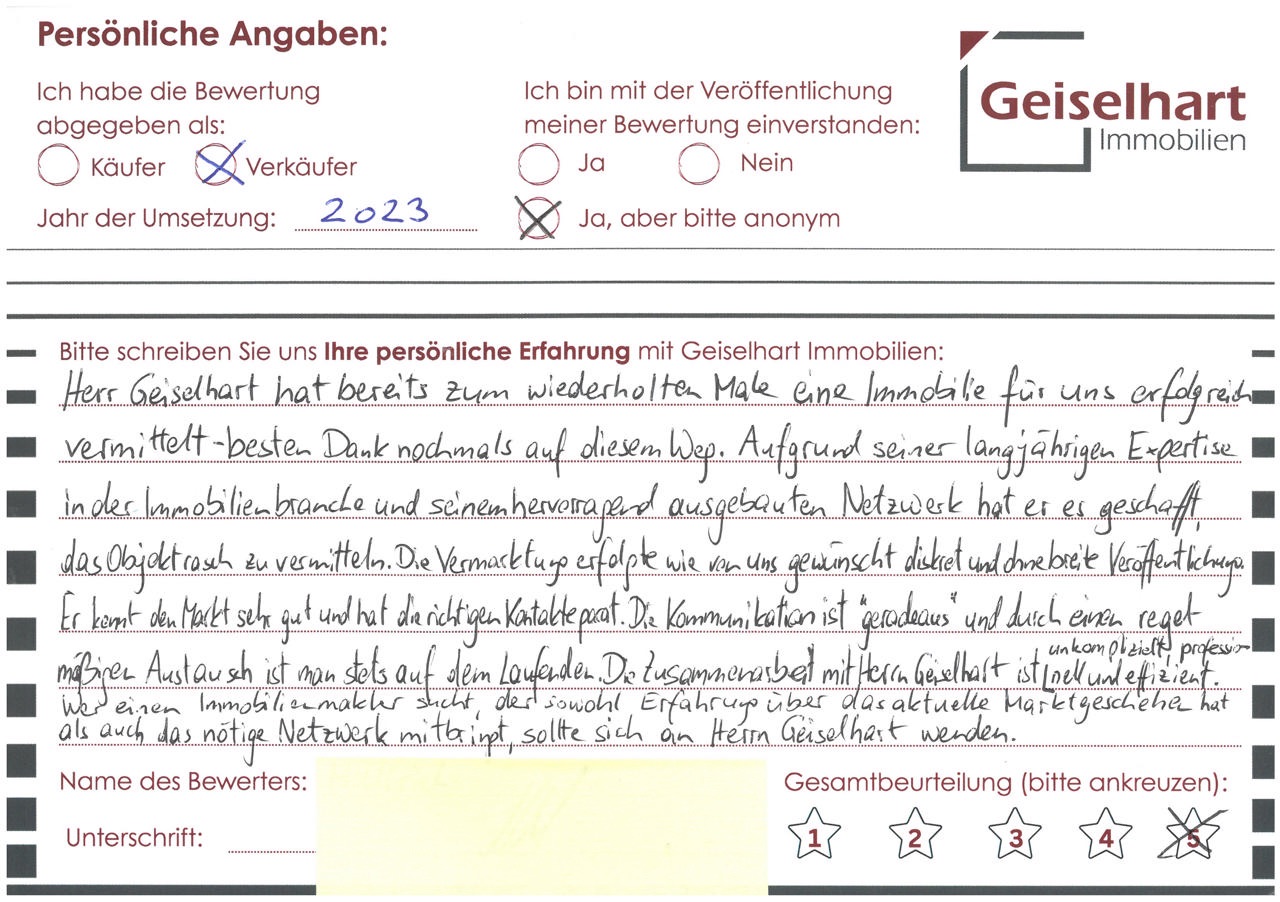 Persönliche Angaben:
Ich habe die Bewertung
abgegeben als:
Käufer
Verkäufer
Jahr der Umsetzung: 2023
Ich bin mit der Veröffentlichung
meiner Bewertung einverstanden:
Ja
Nein
Ja, aber bitte anonym
Geiselhart
Immobilien
Bitte schreiben Sie uns Ihre persönliche Erfahrung mit Geiselhart Immobilien:
Herr Geiselhart hat bereits zum wiederholten Male eine Immobilie für uns erfolgreich
vermittelt - besten Dank nochmals auf diesem Weg. Aufgrund seiner langjährigen Expertise
in der Immobilienbranche und seinem hervorragend ausgebauten Netzwerk hat er es geschafft,
das Objekt rasch zu vermitteln. Die Vermarktung erfolgte wie von uns gewünscht diskret und ohne breite Veröffentlichung.
Er kennt den Markt sehr gut und hat die richtigen Kontakte parat. Die Kommunikation ist "geradeaus" und durch einen regel
mäßigen Austausch ist man stets auf dem Laufenden. Die Zusammenarbeit mit Herrn Geiselhart ist unkompliziert, professio-
nell und effizient.
Wer einen Immobilienmakler sucht, der sowohl Erfahrung über das aktuelle Marktgeschehen hat
als auch das nötige Netzwerk mitbringt, sollte sich an Herrn Geiselhart wenden.
Name des Bewerters:
Unterschrift:
Gesamtbeurteilung (bitte ankreuzen):
1 2 3 4 5